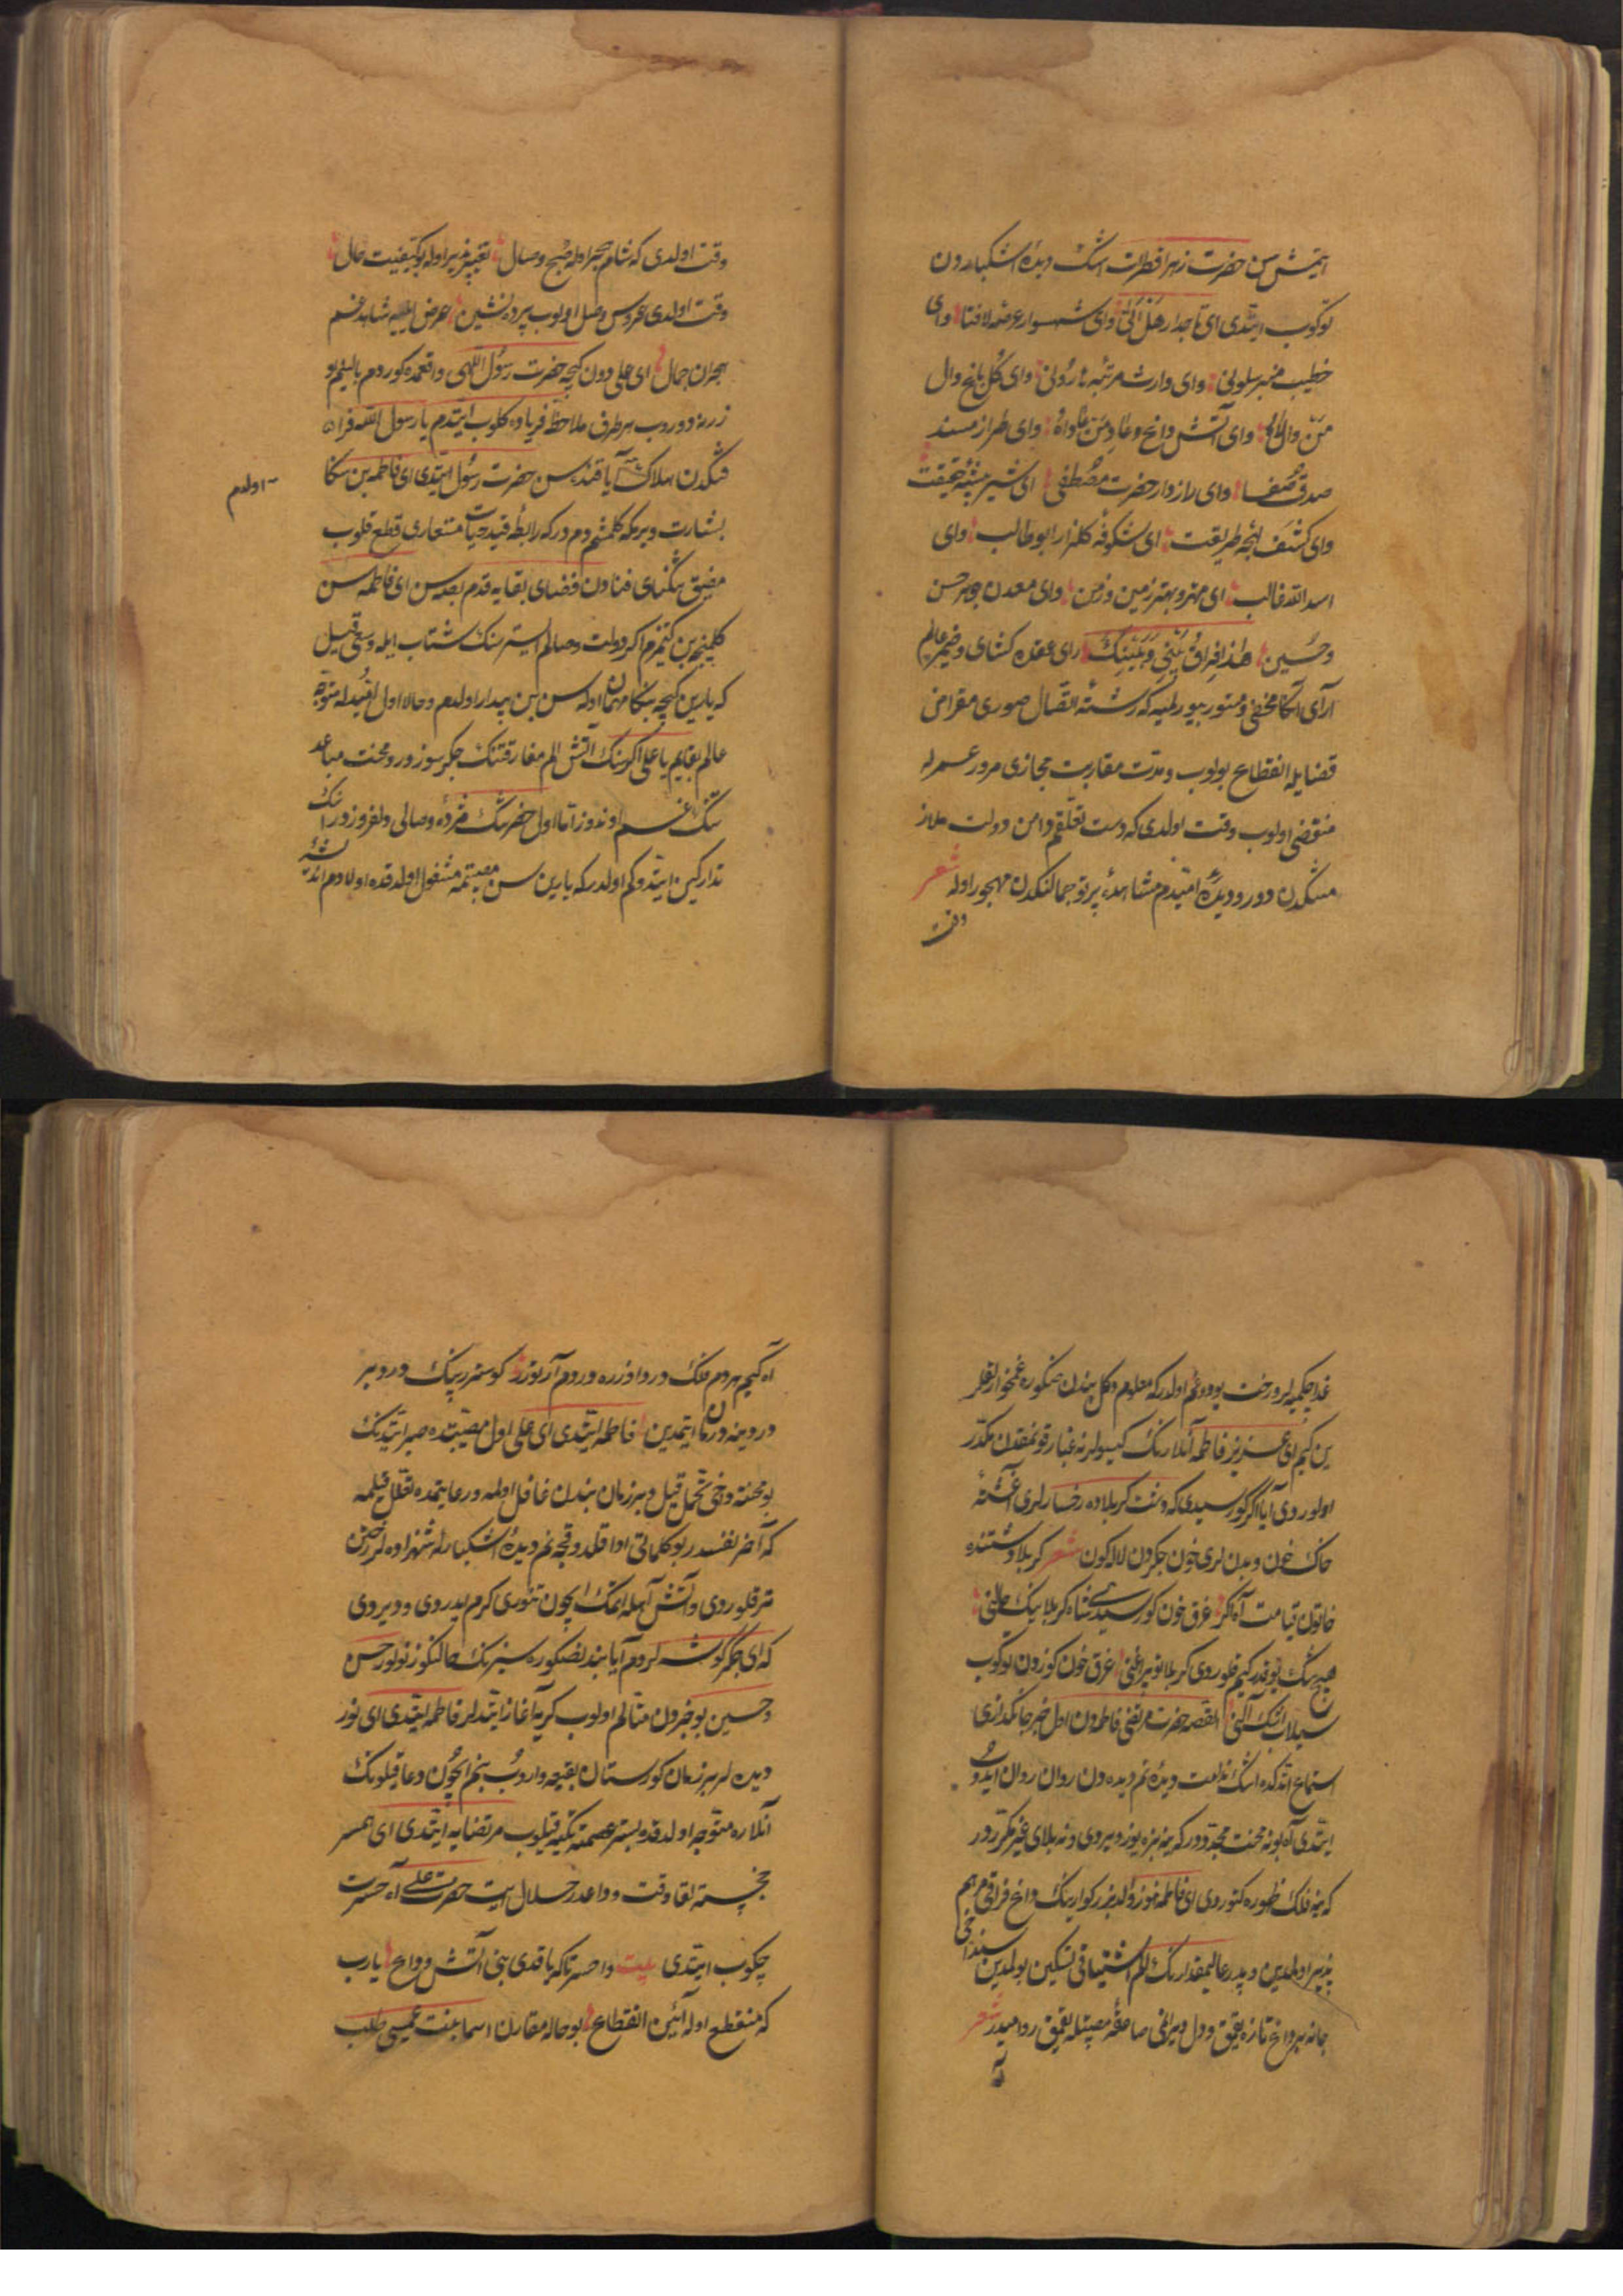 ایتمش سن حضرت زهرا قطرات اشک دیدهٔ اشکباردون
توکوب ایتدی ای تاجدار هل اتی وای شهسوار عرصهٔ لافتا وای
خطیب منبر سلونی وای وارث مرتبهٔ هارونی وای کل باغ وال
من والاه وای آتش داغ وعاد من عاداه وای طراز مسند
صدق وصفا وای رازدار حضرت مصطفی ای شیر بیشهٔ حقیقت
وای کشف لجهٔ طریقت ای شکوفهٔ کلزار ابوطالب وای
اسد الله غالب ای مهتر وبهتر زمین وزمن وای معدن جوهر حسن
وحسین هذا فراق بینی وبینک رای عقده کشای وضمیر عالم
آرای آنکا مخفی ومستور بیورلمیه که رشتهٔ اتصال صوری مقراض
قضایله انقطاع بولوب ومدت مقاربت مجازی مرور عمرله
منقضی اولوب وقت اولدی که دست تعلقم دامن دولت ملاز
متنکدن دور ودیدهٔ امیدم مشاهدهٔ پرتو جمالنکدن مهجور اوله شعر
وقت
وقت اولدی که شام هجر اوله صبح وصال تغییرپذیر اوله بو کیفیت حال
وقت اولدی عروس وصل اولوب پرده نشین عرض ایلیه شاهد غم
هجران جمال ای علی دون کیجه حضرت رسول اللهی واقعمده کوردم بالینم او
زرنه دوروب هر طرف ملاحظه فریاده کلوب ایتدم یا رسول الله فرا
قنکدن هلاک آیا قنده سن حضرت رسول ایتدی ای فاطمه بن سکا
- اولدم
بشارت ویرمکه کلمشم دم درکه رابطهٔ قید حیات مستعاری قطع قلوب
مضیق تنکنای فنادن فضای بقایه قدم بصه سن ای فاطمه سن
کلمینجه بن کتمزم اکر دولت وصالم استرسنک شتاب ایله وسعی قیل
که یارین کیجه بنکا مهمان اوله سن بن بیدار اولدم وحالا اول امیدله متوجه
عالم بقایم یا علی اکر سنک آتش الم مفارقتنک جکرسوز ورد محنت مباعد
تنک غم اندوز اما اول حضرتنک مژدهٔ وصالی دلفروزدر انک
تدارکین ایتدوکم اولدر که یارین سن مصیبتمه مشغول اولدقده اولادم اندیشهٔ
غدا چکمیه لر ورخت بودوغم اولدر که معلوم دکل بندن صکره غمخوارلقلر
ین کیم ای عزیز فاطمه آنلارنک کیسولرنه غبار قونمقدن مکدر
اولوردی آیا اکر کورسیدی که دشت کربلاده رخسارلری آغشتهٔ
خاک خون وبدنلری خون جکردن لاله کون شعر کربلا دشتنده
خاتون قیامت آه اکر غرق خون کورسیدی شاه کربلانیک حالنی
هیچ شک یوقدر کیم قلوردی کربلا توپراغنی غرق خون کوزدن توکوب
سیلاب اشک آلنی القصه حضرت مرتضی فاطمه دن اول خبر جانکدازی
استماع اتدکده اشک ندامت دیدهٔ نم دیده دن روان روان ایدوب
ایتدی آه بو نه محنت مجددور که ینه بزه یوز ویردی ونه بلای غیر مکرردور
که ینه فلک ظهوره کتوردی ای فاطمه هنوز والد بزرکوارینک داغ فراقی مرهم
پذیر اولمدین وپدر عالیمقدارنک الم اشتیاقی تسکین بولمدین سنداخی
جانه بر داغ تازه یقمق ودل ویرانی صاعقهٔ مصیبتله یقمق روامیدر شعر
آه
آه کیم هر دم فلک درد اوزره دردم آرتورر کوستررینک درد بر
دردینه درمان ایتمدین فاطمه ایتدی ای علی اول مصیبتده صبر ایتدنک
بو محنته دخی تحمل قیل وبر زمان بندن غافل اولمه ورعایتمده تقلل قیلمه
که آخر نفسدر بو کلماتی ادا قلدوقجه نم دیدهٔ اشکبارله شهزاده لر رختن
تر قلوردی وآتش آهله اتمک ایچون تنوری کرم ایدردی ودیردی
که ای جکرکوشه لردم آیا بندن صکره سیزنک حالنکوز نولور حسن
وحسین بو خبردن متالم اولوب کریه آغاز ایتدلر فاطمه ایتدی ای نور
دیده لر بر زمان کورستان بقیعه واروب بنم ایچون دعا قیلونک
آنلاره متوجه اولدقده بستر عصمته تکیه قیلوب مرتضایه ایتدی ای همسر
خجسته لقا وقت وداعدر حلال ایت حضرت علی آه حسرت
چکوب ایتدی بیت واحسرتا که یاقدی بنی آتش وداع یارب
که منقطع اوله آئین انقطاع بو حاله مقارن اسما بنت عمیسی طلب